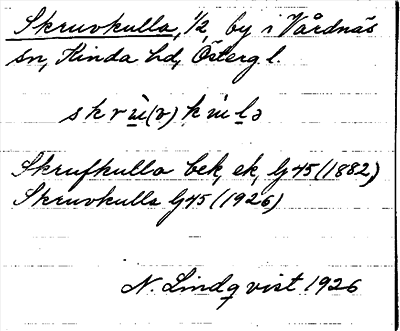 Skruvkulla, 1/2, by i Vårdnäs
sn, Kinda hd, Östergl.
skrù(v)kùlə
Skrufkulla bek, ek, Gj45 (1882)
Skruvkulla Gj45 (1926)
N. Lindqvist 1926